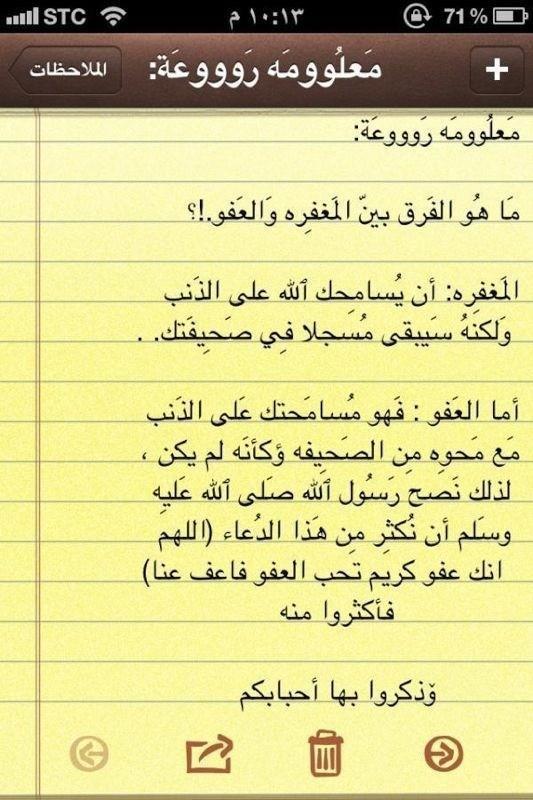 STC ١٠:١٣ م 71%
الملاحظات مَعلُوومَه رَوووعَة: +
مَعلُوومَه رَوووعَة:
مَا هُو الفَرق بينّ المَغفرِه وَالعَفو.!؟
المَغفرِه: أن يُسامِحك الله على الذَنب
وَلكنهُ سَيبقى مُسجلا فِي صَحِيفَتك. .
أما العَفو : فَهو مُسامَحتك عَلى الذَنب
مَع مَحوِه مِن الصَحِيفه وَكأنَه لم يكن ،
لذلك نَصح رَسُول الله صَلى الله عَليهِ
وسَلم أن نُكثِر مِن هَذا الدُعاء (اللهم
انك عفو كريم تحب العفو فاعف عنا)
فأكثروا منه
وَذكروا بها أحبابكم